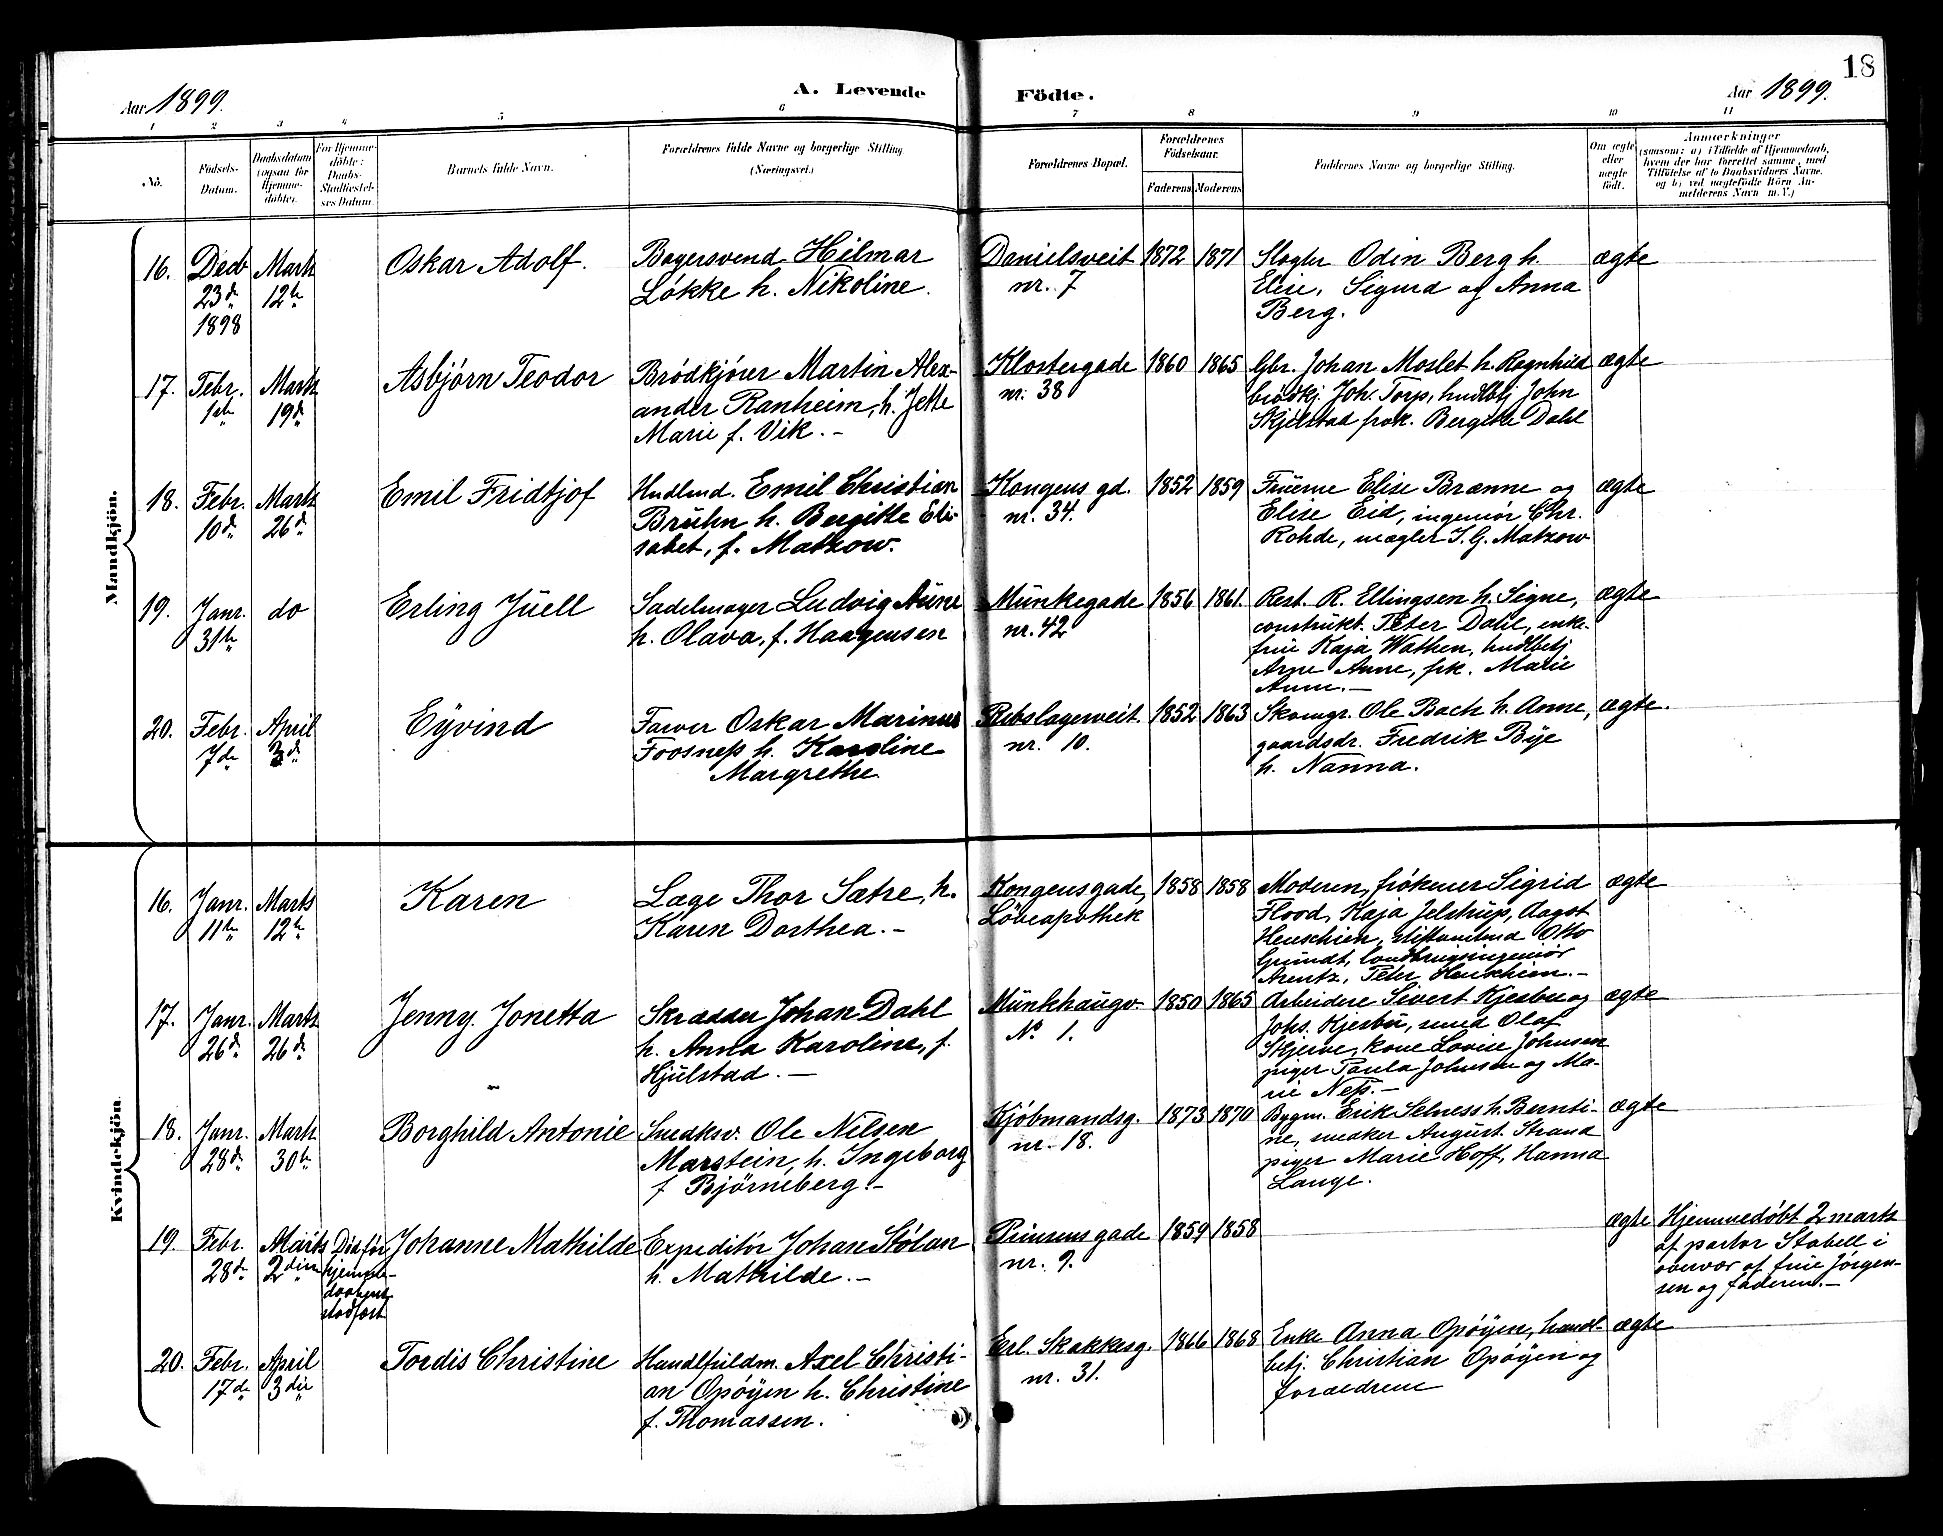 18
Aar 1899.
A. Levende
Födte.
Aar 1899.
1 2 3 4 5 6 7 8 9 10 11
No.
Födsels-Datum.
Daabsdatum (ogsaa for Hjemmedöbte).
For Hjemmedöbte: Daabs-Stadfæstelses Datum.
Barnets fulde Navn.
Forældrenes fulde Navne og borgerlige Stilling (Næringsvei.)
Forældrenes Bopæl.
Forældrenes Födselsaar.
Faderens Moderens
Faddernes Navne og borgerlige Stilling.
Om ægte eller uægte født.
Anmærkninger
(saasom: a) i Tilfælde af Hjemmedaab, hvem der har forrettet samme, med Tilföielse af to Daabsvidners Navne, og b) ved uægtefödte Börn Anmelderens Navn m. V.)
Mandkjön.
16. Decb 23d 1898
Marts 12te
Oskar Adolf.
Bagersvend Hilmar
Løkke h. Nikoline.
Danielsveit
nr. 7
1872 1871
Slagter Odin Berg h.
Elise, Sigurd og Anna
Berg.
ægte
17. Febr. 1ste
Marts 19d
Asbjørn Teodor
Brödkjører Martin Alex-
ander Ranheim, h. Jette
Marie f. Vik.-
Klostergade
nr. 38
1860 1865
Gbr. Johan Moslet h. Ragnhild
brödkj. Joh. Torp, hndlbtj John
Skjelstad frøk. Bergitte Dahl
ægte
18. Febr. 10d
Marts 26d
Emil Fridtjof
Hndlmd. Emil Christian
Bruhn h. Bergitte Eli-
sabet, f. Matzow.
Kongens gd.
nr. 34.
1852 1859
Fruerne Elise Brænne og
Elise Eid, ingeniør Chr.
Rohde, mægler I. G. Matzow
ægte
19. Janr. 31te
do
Erling Juell
Sadelmager Ludvig Aune
h. Olava, f. Haagensen
Munkegade
nr. 42
1856 1861.
Rest. R. Ellingsen h. Signe,
construkt. Peter Dahl, enke-
frue Kaja Wathen, hndlbetj
Arne Aune, frk. Marie
Aune.-
ægte
20. Febr. 7de
April 3d
Eyvind
Farver Oskar Marinus
Foosness h. Karoline
Margrethe
Rebslagerveit.
nr. 10.
1852 1863
Skomgr. Ole Bach h. Anne,
gaardsdr. Fredrik Bye
h. Nanna.
ægte.
Kvindekjön.
16. Janr. 11te
Marts 12te
Karen
Læge Thor Sætre, h.
Karen Dorthea.-
Kongensgade,
Löveapothek
1858 1858
Moderen, frøkener Sigrid
Flood, Kaja Jelstrup, Aagot
Henschien, stiftamtmd Otto
Grundt, landbrugsingeniør
Arentz, Peter Henschien.-
ægte
17. Janr. 26d
Marts 26d
Jenny Jonetta
Skrædder Johan Dahl
h. Anna Karoline, f.
Hjulstad.-
Munkhaugv.
No 1.
1850 1865
Arbeidere Sivert Kjesbu og
Johs. Kjesbu, smed Olaf
Skjerve, kone Lovise Johnsen
piger Paula Johnsen og Ma-
rie Ness.-
ægte
18. Janr. 28d
Marts 30te
Borghild Antonie
Snedksv. Ole Nilsen
Marstein, h. Ingeborg
f Bjørneberg.-
Kjöbmandsg.
nr. 18.
1873 1870
Bygm. Erik Selness h. Bernti-
ne, snedker August Strand
piger Marie Hoff, Hanna
Lange.
ægte
19. Febr. 28d
Marts 2den
Död før
hjemme-
daabens
stadfæst
Johanne Mathilde
Expeditör Johan Stölan
h. Mathilde.-
Prinsensgade
nr. 9.
1859 1858
ægte
Hjemmedøbt 2 marts
af pastor Stabell i
overvær af frue Jørgen-
sen og faderen.-
20. Febr. 17de
April 3die
Tordis Christine
Handlfuldm. Axel Christi-
an Opöyen h. Christine
f. Thomassen.
Erl. Skakkesg.
nr. 31.
1866 1868
Enke Anna Opöyen, handl-
betj. Christian Opöyen og
forældrene
ægte